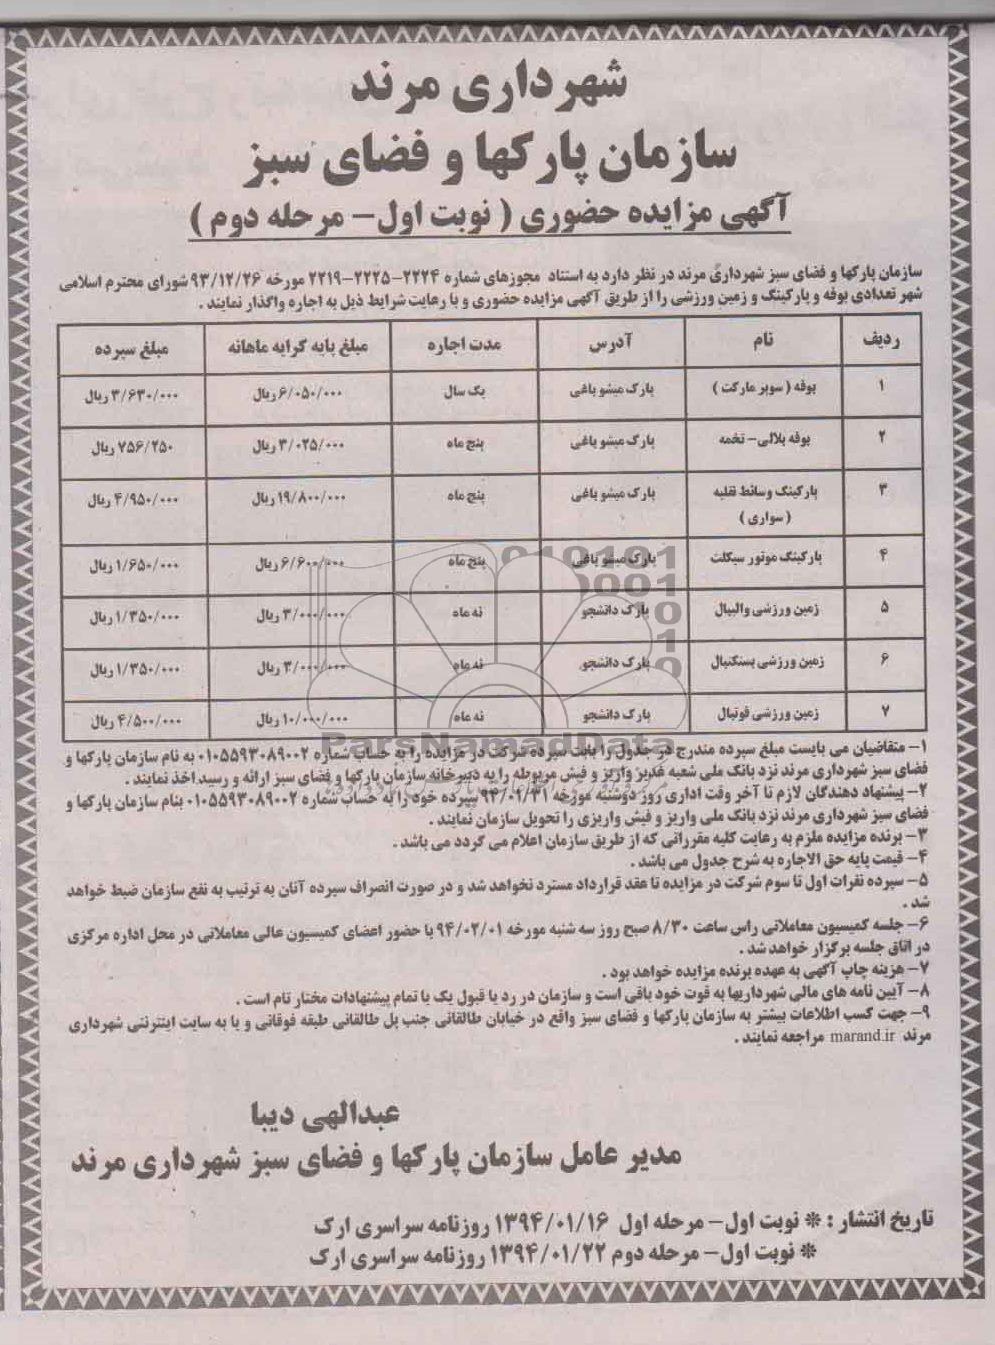 شهرداری مرند
سازمان پارکها و فضای سبز
آگهی مزایده حضوری ( نوبت اول- مرحله دوم )
سازمان پارکها و فضای سبز شهرداری مرند در نظر دارد به استناد مجوزهای شماره ۲۲۲۴-۲۲۲۵-۲۲۱۹ مورخه ۹۳/۱۲/۲۶ شورای محترم اسلامی
شهر تعدادی بوفه و پارکینگ و زمین ورزشی را از طریق آگهی مزایده حضوری و با رعایت شرایط ذیل به اجاره واگذار نمایند .
ردیف نام آدرس مدت اجاره مبلغ پایه کرایه ماهانه مبلغ سپرده
۱ بوفه ( سوپر مارکت ) پارک میشو باغی یک سال ۶/۰۵۰/۰۰۰ ریال ۳/۶۳۰/۰۰۰ ریال
۲ بوفه بلالی- تخمه پارک میشو باغی پنج ماه ۳/۰۲۵/۰۰۰ ریال ۷۵۶/۲۵۰ ریال
۳ پارکینگ وسائط نقلیه پارک میشو باغی پنج ماه ۱۹/۸۰۰/۰۰۰ ریال ۴/۹۵۰/۰۰۰ ریال
( سواری )
۴ پارکینگ موتور سیکلت پارک میشو باغی پنج ماه ۶/۶۰۰/۰۰۰ ریال ۱/۶۵۰/۰۰۰ ریال
۵ زمین ورزشی والیبال پارک دانشجو نه ماه ۳/۰۰۰/۰۰۰ ریال ۱/۳۵۰/۰۰۰ ریال
۶ زمین ورزشی بسکتبال پارک دانشجو نه ماه ۳/۰۰۰/۰۰۰ ریال ۱/۳۵۰/۰۰۰ ریال
۷ زمین ورزشی فوتبال پارک دانشجو نه ماه ۱۰/۰۰۰/۰۰۰ ریال ۴/۵۰۰/۰۰۰ ریال
ParsNamadData
۱- متقاضیان می بایست مبلغ سپرده مندرج در جدول را بابت سپرده شرکت در مزایده را به حساب شماره ۰۱۰۵۵۹۳۰۸۹۰۰۲ به نام سازمان پارکها و
فضای سبز شهرداری مرند نزد بانک ملی شعبه غدیر واریز و فیش مربوطه را به دبیرخانه سازمان پارکها و فضای سبز ارائه و رسید اخذ نمایند .
۲- پیشنهاد دهندگان لازم تا آخر وقت اداری روز دوشنبه مورخه ۹۴/۰۱/۳۱ سپرده خود را به حساب شماره ۰۱۰۵۵۹۳۰۸۹۰۰۲ بنام سازمان پارکها و
فضای سبز شهرداری مرند نزد بانک ملی واریز و فیش واریزی را تحویل سازمان نمایند .
۳- برنده مزایده ملزم به رعایت کلیه مقرراتی که از طریق سازمان اعلام می گردد می باشد .
۴- قیمت پایه حق الاجاره به شرح جدول می باشد .
۵- سپرده نفرات اول تا سوم شرکت در مزایده تا عقد قرارداد مسترد نخواهد شد و در صورت انصراف سپرده آنان به ترتیب به نفع سازمان ضبط خواهد
شد .
۶- جلسه کمیسیون معاملاتی راس ساعت ۸/۳۰ صبح روز سه شنبه مورخه ۹۴/۰۲/۰۱ با حضور اعضای کمیسیون عالی معاملاتی در محل اداره مرکزی
در اتاق جلسه برگزار خواهد شد .
۷- هزینه چاپ آگهی به عهده برنده مزایده خواهد بود .
۸- آیین نامه های مالی شهرداریها به قوت خود باقی است و سازمان در رد یا قبول یک یا تمام پیشنهادات مختار تام است .
۹- جهت کسب اطلاعات بیشتر به سازمان پارکها و فضای سبز واقع در خیابان طالقانی جنب پل طالقانی طبقه فوقانی و یا به سایت اینترنتی شهرداری
مرند marand.ir مراجعه نمایند .
عبدالهی دیبا
مدیر عامل سازمان پارکها و فضای سبز شهرداری مرند
تاریخ انتشار : * نوبت اول- مرحله اول ۱۳۹۴/۰۱/۱۶ روزنامه سراسری ارک
* نوبت اول- مرحله دوم ۱۳۹۴/۰۱/۲۲ روزنامه سراسری ارک